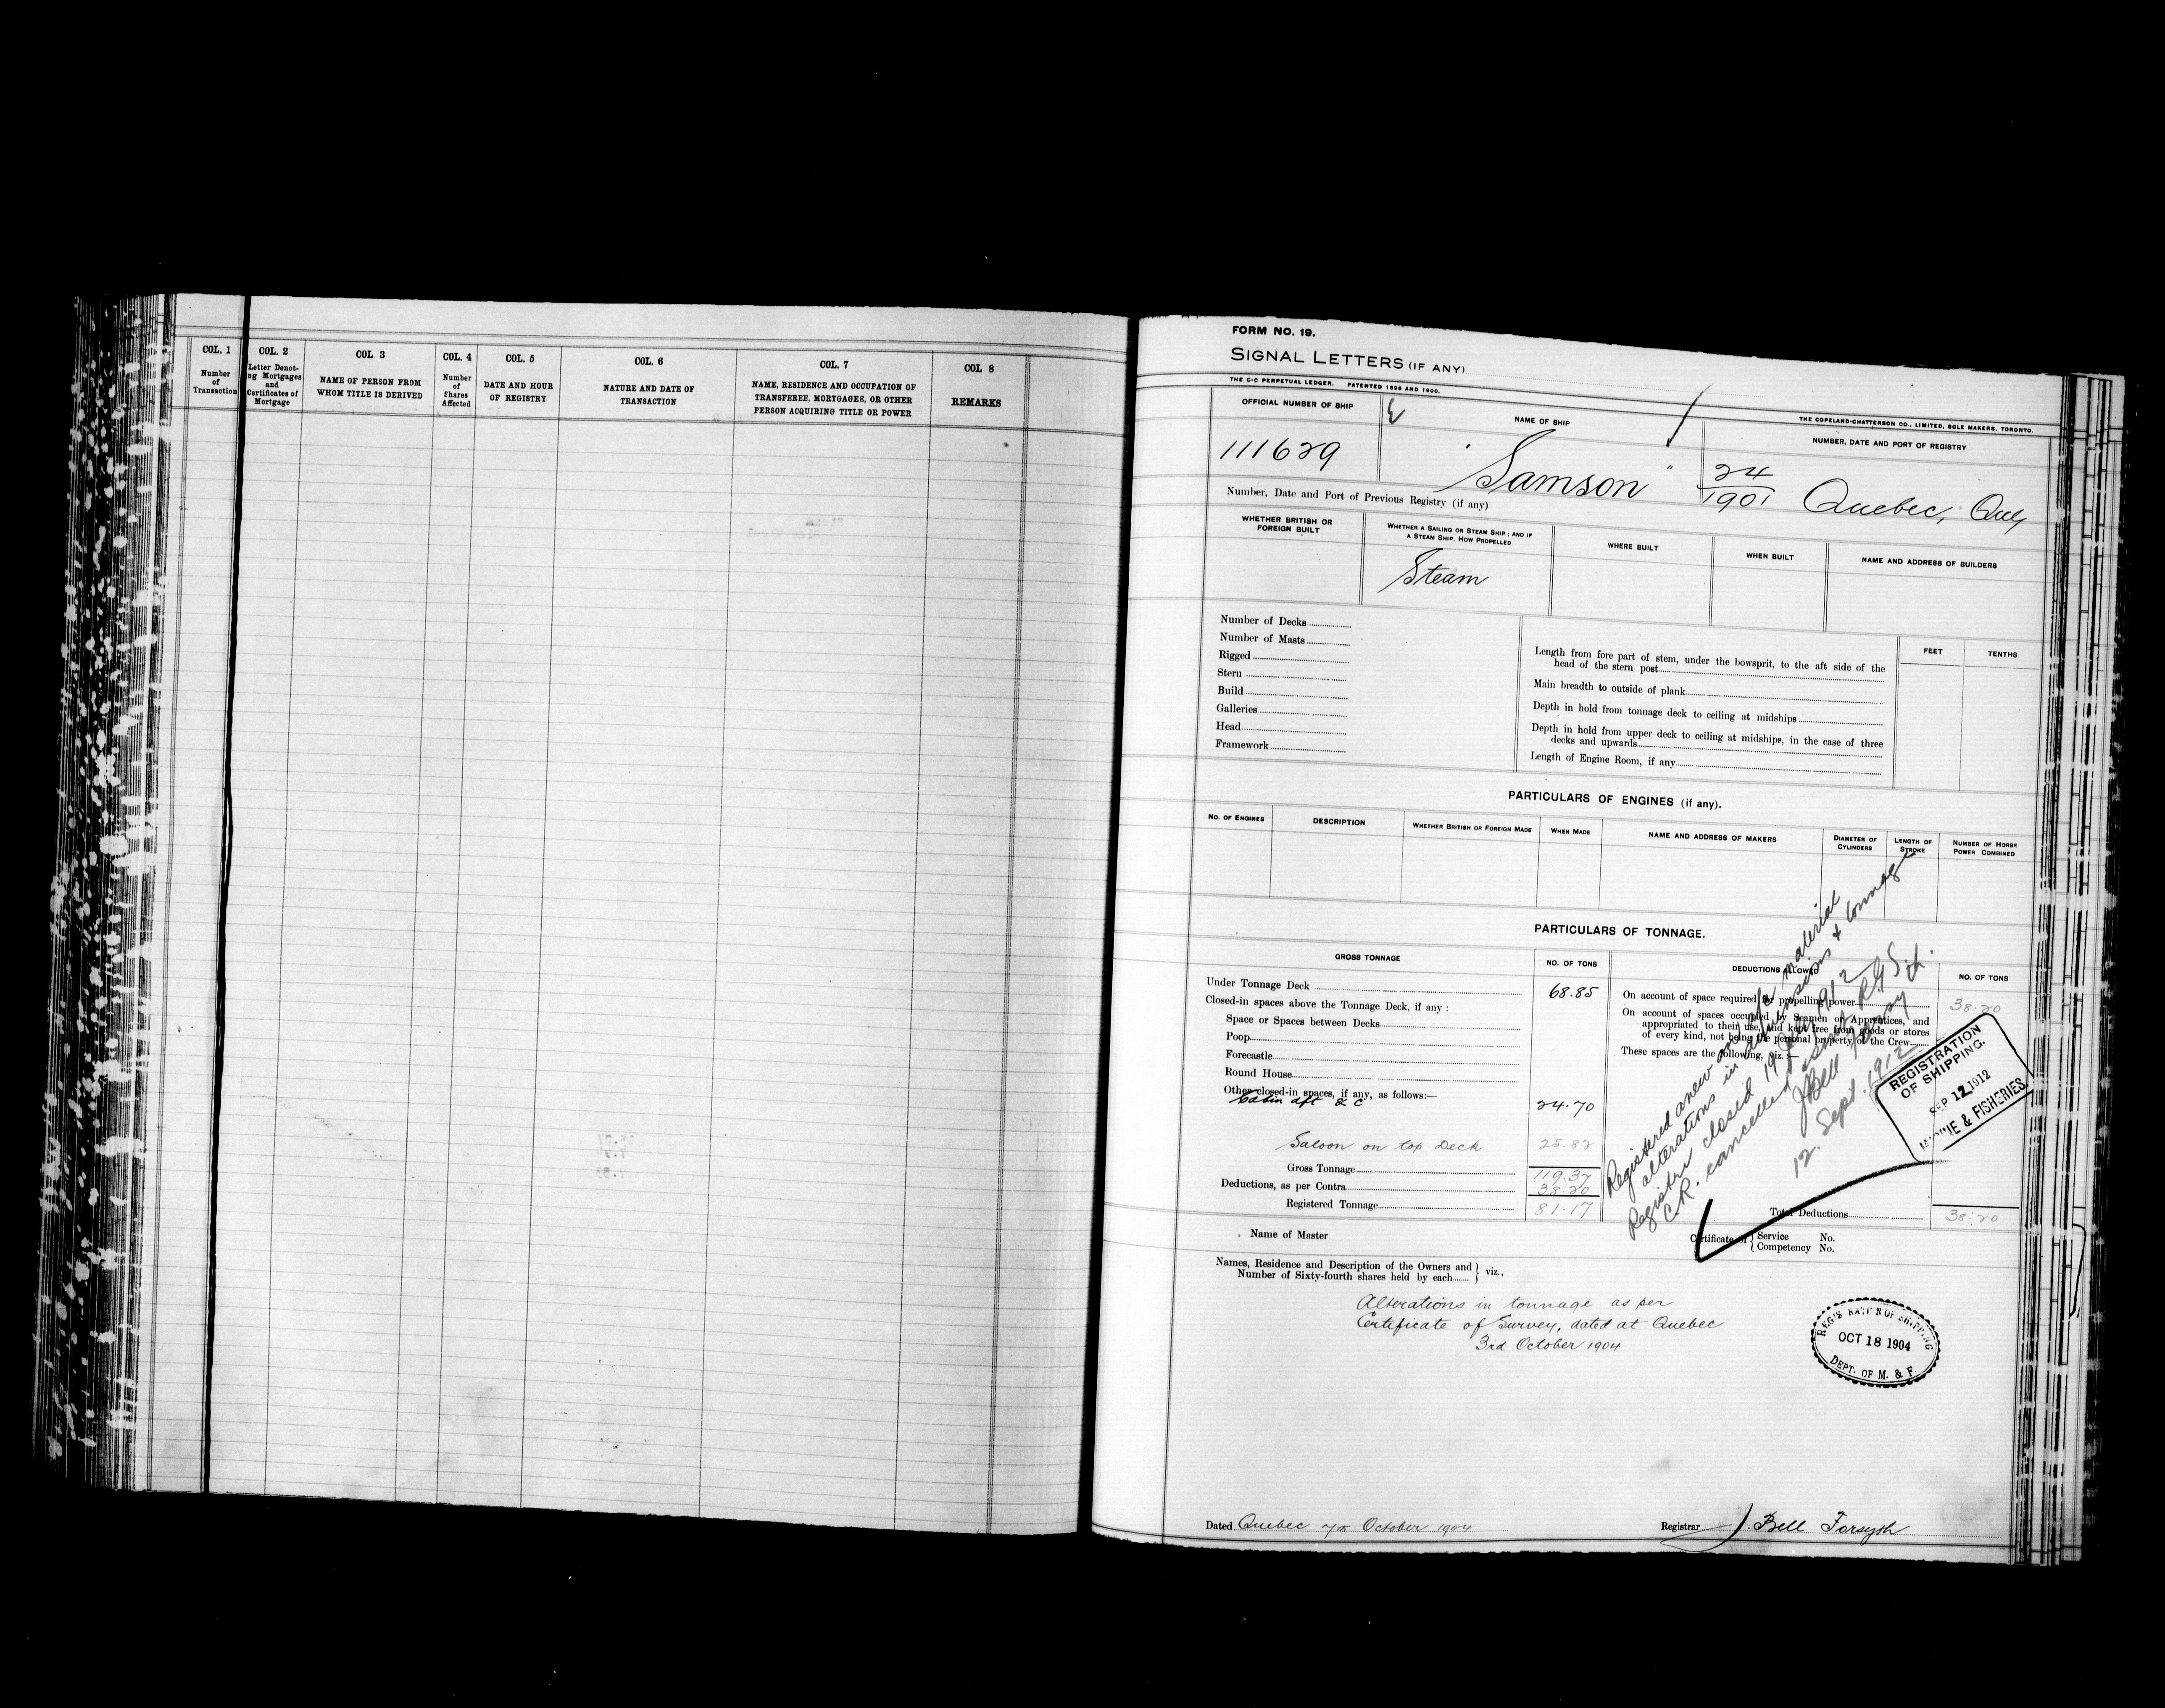 COL. 1
Number
of
Transaction
COL. 2
Letter Denot-
ng Mortgages
and
Certificates of
Mortgage
COL 3
NAME OF PERSON FROM
WHOM TITLE IS DERIVED
COL. 4
Number
of
Shares
Affected
COL. 5
DATE AND HOUR
OF REGISTRY
COL. 6
NATURE AND DATE OF
TRANSACTION
COL. 7
NAME, RESIDENCE AND OCCUPATION OF
TRANSFEREE, MORTGAGES, OR OTHER
PERSON ACQUIRING TITLE OR POWER
COL 8
REMARKS
FORM NO. 19.
SIGNAL LETTERS (IF ANY)
THE C-C PERPETUAL LEDGER. PATENTED 1898 AND 1900.
THE COPELAND-CHATTERSON CO., LIMITED, SOLE MAKERS, TORONTO.
OFFICIAL NUMBER OF SHIP
NAME OF SHIP
NUMBER, DATE AND PORT OF REGISTRY
111629
"Samson"
24
1901
Quebec, Que
Number, Date and Port of Previous Registry (if any)
WHETHER BRITISH OR
FOREIGN BUILT
WHETHER A SAILING OR STEAM SHIP; AND IF
A STEAM SHIP, HOW PROPELLED
WHERE BUILT
WHEN BUILT
NAME AND ADDRESS OF BUILDERS
Steam
Number of Decks
Number of Masts
Rigged
Stern
Build
Galleries
Head
Framework
FEET
TENTHS
Length from fore part of stem, under the bowsprit, to the aft side of the
head of the stern post
Main breadth to outside of plank
Depth in hold from tonnage deck to ceiling at midships
Depth in hold from upper deck to ceiling at midships, in the case of three
decks and upwards
Length of Engine Room, if any
PARTICULARS OF ENGINES (if any).
NO. OF ENGINES
DESCRIPTION
WHETHER BRITISH OR FOREIGN MADE
WHEN MADE
NAME AND ADDRESS OF MAKERS
DIAMETER OF
CYLINDERS
LENGTH OF
STROKE
NUMBER OF HORSE
POWER COMBINED
PARTICULARS OF TONNAGE.
GROSS TONNAGE
NO. OF TONS
DEDUCTIONS ALLOWED
NO. OF TONS
Under Tonnage Deck 68.85
Closed-in spaces above the Tonnage Deck, if any:
Space or Spaces between Decks
Poop
Forecastle
Round House
Other closed-in spaces, if any, as follows:—
Cabin aft &c 24.70
Saloon on top Deck 25.82
Gross Tonnage 119.37
Deductions, as per Contra 38.20
Registered Tonnage 81.17
On account of space required for propelling power 38.20
On account of spaces occupied by Seamen or Apprentices, and
appropriated to their use, and kept free from goods or stores
of every kind, not being the personal property of the Crew
These spaces are the following, viz.:—
Total Deductions 38.20
Registered anew material
alterations in dimensions & tonnage
Registry closed 1912
C.R. cancelled
J Bell Forsyth
12 Sept. 1912
REGISTRATION
OF SHIPPING.
SEP 12 1912
MARINE & FISHERIES
Name of Master
Certificate of { Service No.
Competency No.
Names, Residence and Description of the Owners and
Number of Sixty-fourth shares held by each } viz.,
Alterations in tonnage as per
Certificate of Survey, dated at Quebec
3rd October 1904
REGISTRATION OF SHIPPING
OCT 18 1904
DEPT. OF M. & F.
Dated Quebec 7th October 1904
Registrar J Bell Forsyth